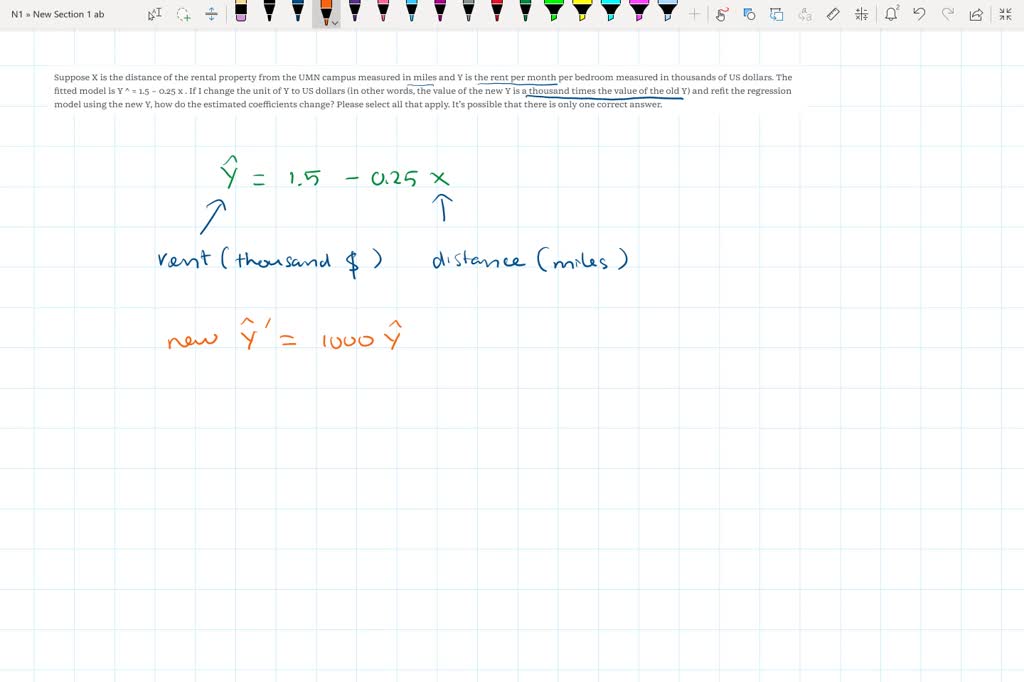 N1 » New Section 1 ab
Suppose X is the distance of the rental property from the UMN campus measured in miles and Y is the rent per month per bedroom measured in thousands of US dollars. The
fitted model is Y ^ = 1.5 − 0.25 x . If I change the unit of Y to US dollars (in other words, the value of the new Y is a thousand times the value of the old Y) and refit the regression
model using the new Y, how do the estimated coefficients change? Please select all that apply. It's possible that there is only one correct answer.
Ŷ = 1.5 - 0.25 x
rent (thousand $) distance (miles)
new Ŷ' = 1000 Ŷ